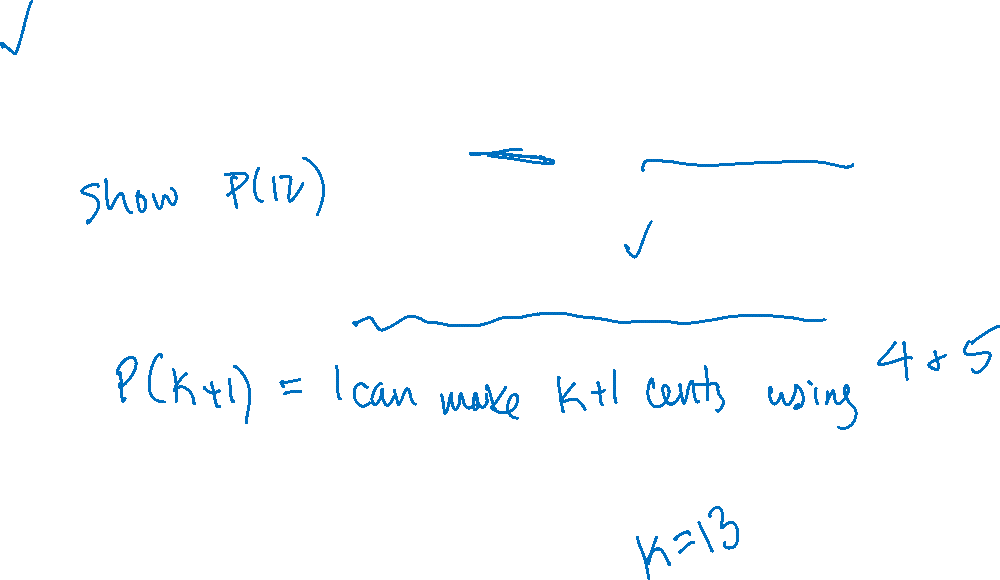 show P(12)
P(K+1) = I can make K+1 cents using 4 & 5
K=13